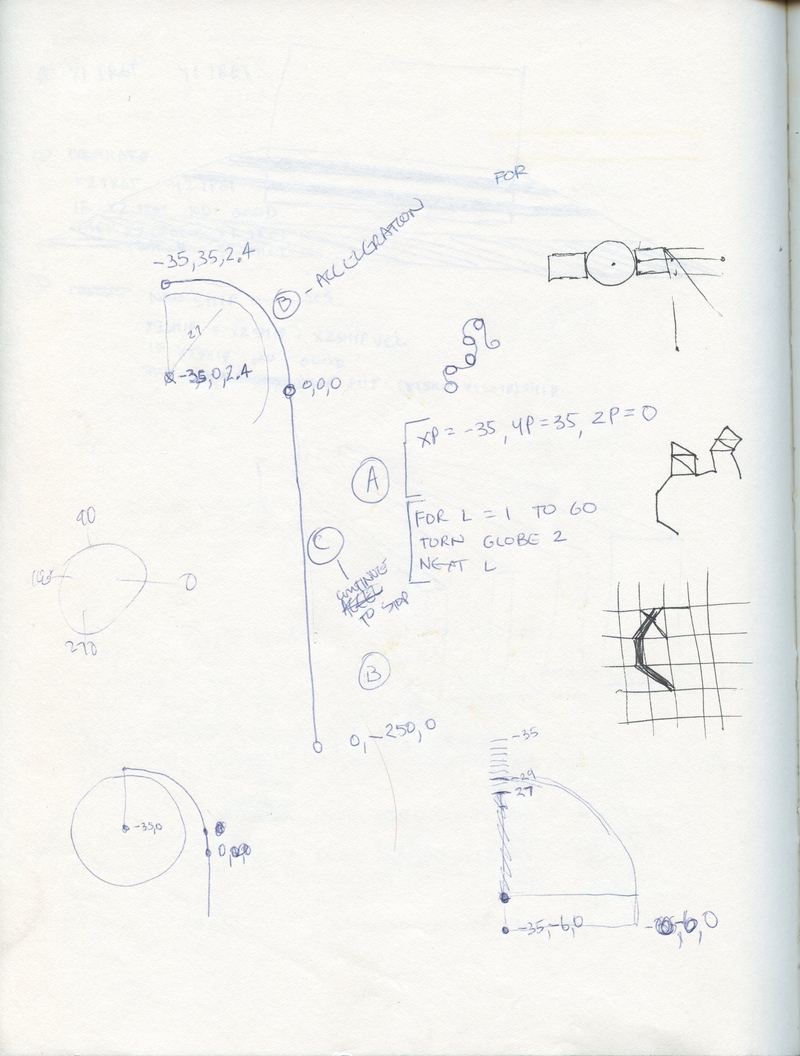 FOR
-35,35,2.4
B - ACCELERATION
27
-35,0,2.4
0,0,0
XP = -35, YP = 35, ZP = 0
A
FOR L = 1 TO 60
TURN GLOBE 2
NEXT L
C
CONTINUE
TO STOP
90
0
270
B
0,-250,0
-35
-29
27
-35,0
-35,-6,0